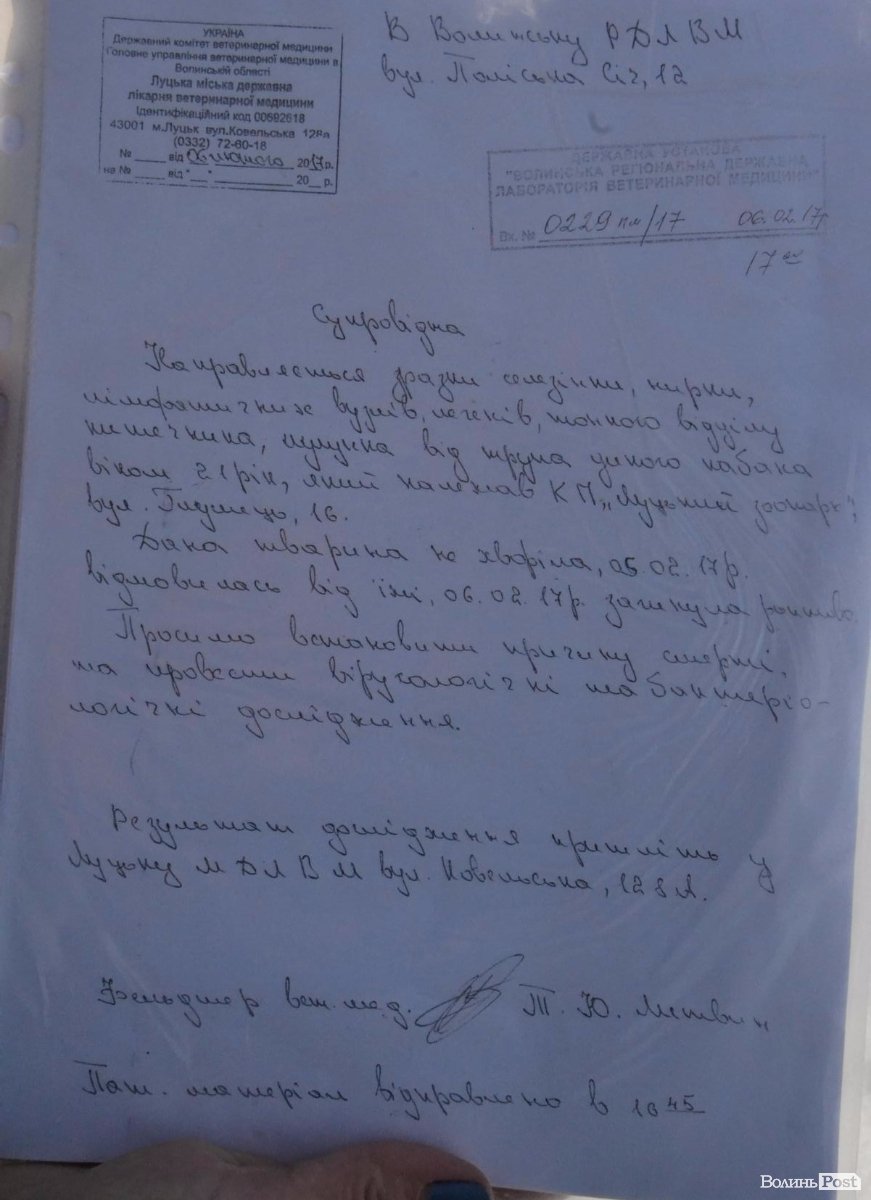 УКРАЇНА
Державний комітет ветеринарної медицини
Головне управління ветеринарної медицини в
Волинській області
Луцька міська державна
лікарня ветеринарної медицини
Ідентифікаційний код 00692618
43001 м.Луцьк вул.Ковельська 128а
(0332) 72-60-18
№ _____ від 06 лютого 2017р.
на № _____ від "___" ________ 20__ р.
В Волинську РДЛВМ
вул. Поліська Січ, 12
ДЕРЖАВНА УСТАНОВА
"ВОЛИНСЬКА РЕГІОНАЛЬНА ДЕРЖАВНА
ЛАБОРАТОРІЯ ВЕТЕРИНАРНОЇ МЕДИЦИНИ"
Вх. № 0229 пм/17 06.02.17р
17
Супровідна
Направляється зразки селезінки, нирки,
лімфатичних вузлів, легенів, тонкого відділу
кишечника, шлунка від трупа дикого кабана
віком 21рік, який належав КП „Луцький зоопарк",
вул. Глушець, 16.
Дана тварина не хворіла, 05.02.17р.
відмовилась від їжі, 06.02.17р. загинула раптово.
Просимо встановити причину смерті.
та провести вірусологічні та бактеріо-
логічні дослідження.
Результат дослідження пришліть у
Луцьку МДЛВМ вул. Ковельська, 128А.
Фельдшер вет.мед. Т.Ю. Литвин
Пат. матеріал відправлено в 16 45
ВолиньPost